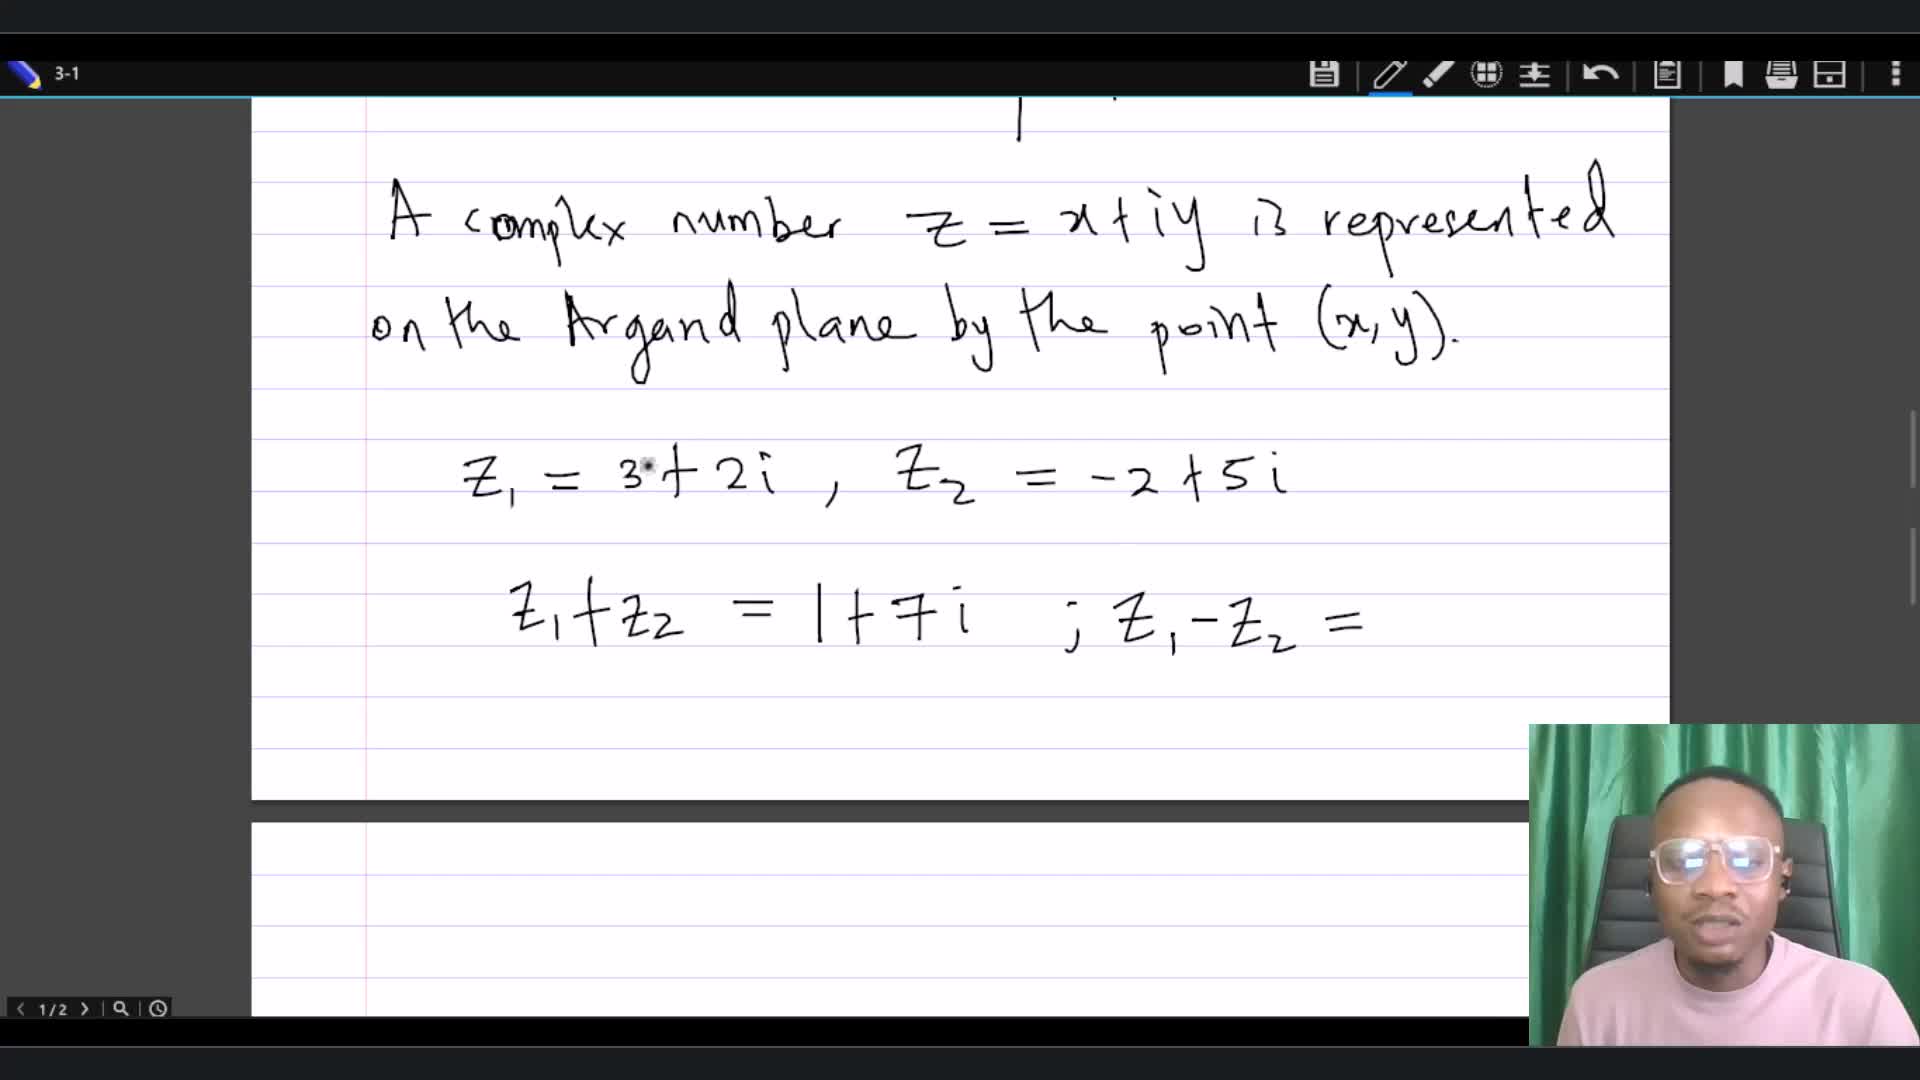 3-1
A complex number z = x + iy is represented
on the Argand plane by the point (x, y).
z₁ = 3 + 2i , z₂ = -2 + 5i
z₁ + z₂ = 1 + 7i ; z₁ - z₂ =
1/2